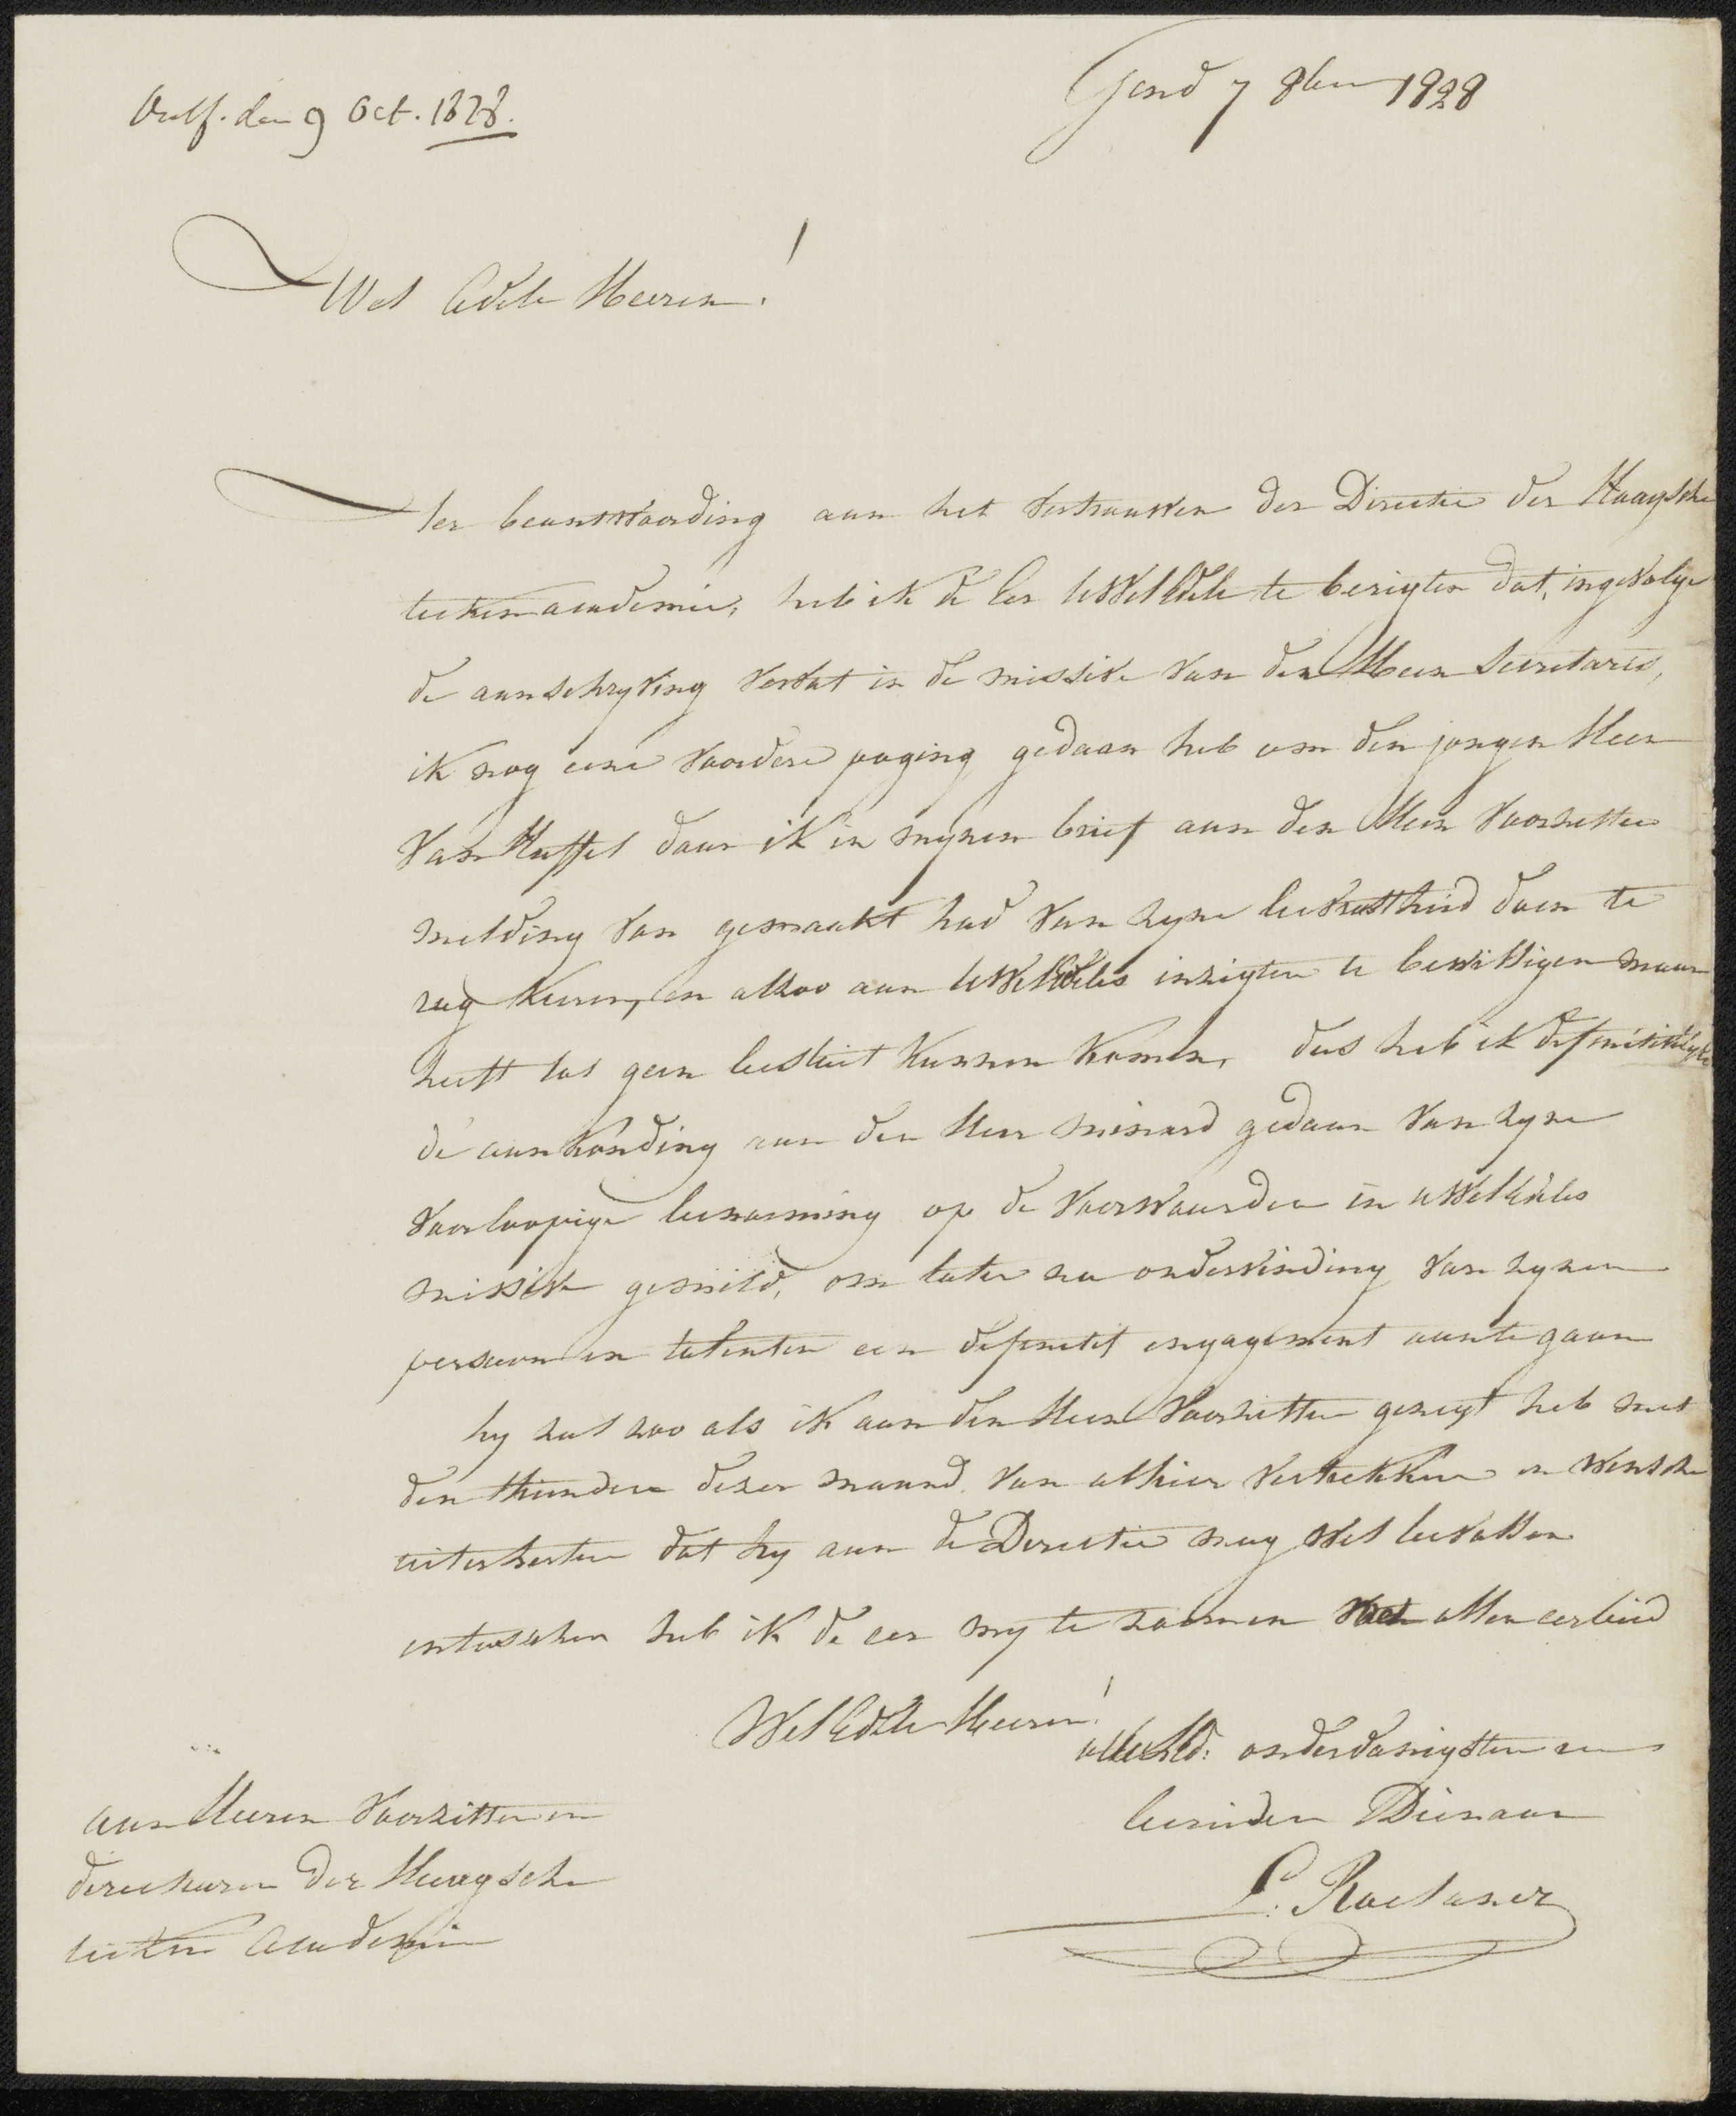 Ontf. den 9 Oct. 1828.
Gend 7 8ber 1828
Wel Edele Heeren!
ter beantwoording aan het vertrouwen der Directie der Haagsche
teekenacademie, heb ik de eer UWelEdele te berigten dat, ingevolge
de aanschryving vervat in de missive van den Heer Secretaris,
ik nog eene voordere poging gedaan heb om den jongen Heer
Van Huffel daar ik in mynen brief aan den Heer Voorzitter
melding van gemaakt had van zyne bedruktheid doen te
rug keeren, en alzoo aan UWelEdeles inzigten te bewilligen maar
heeft tot geen besluit kunnen komen, dus heb ik definitivelyk
de aankonding aan den Heer Minard gedaan van zyne
voorloopige benoeming op de voorwaarden in UWelEdeles
missive gemeld, om later na ondervinding van zynen
persoon en talenten een definitif engagement aantegaan
hy zal zoo als ik aan den Heer Voorzitter gezegt heb met
den thienden dezer maand van alhier vertrekken en wensche
uiterharten dat hy aan de Directie mag wel bevallen
intusschen heb ik de eer my te noemen met allen eerbied
WelEdele Heeren!
onderdanigsten en
bereiden Dienaar
L. Roelandt
aan Heeren Voorzitter en
directeuren der Haagsche
teeken Academie